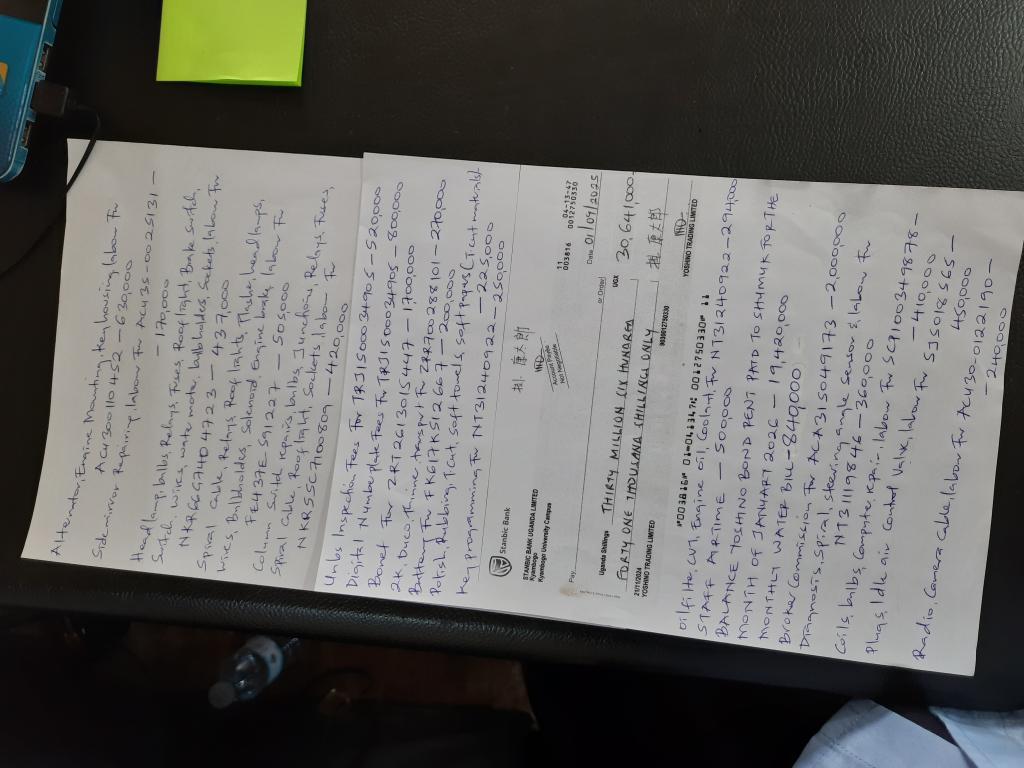 Alternator, Engine Mounting, key housing, labour For
ACU300110452 – 630,000
Sidemirror Repairing, labour For ACU35-0025131 –
– 170,000
Headlamp, bulbs, Relays, Fuses, Roof light, Brake switch,
Switch, wires, water motor, bulbholders, Sockets, labour For
NKR66E7404723 – 437,000
Spiral cable, Relays, Roof lights, Flasher, headlamps,
wires, Bulbholders, Solenoid Engine brake, labour For
– 505,000
Column switch repairs, bulbs, Junction, Relays, Fuses,
Spiral Cable, Roof light, Sockets, labour For
NKR55C7100809 – 420,000
Unbs Inspection Fees For TRJ1500034905 – 520,000
Digital Number plate Fees For TRJ1500034905 – 800,000
Bonnet For ZRT2613015447 – 1700,000
2K, Duco, Thinner, transport For ZRR700028101 – 270,000
Buttoning For FK617K512667 – 200,000
Polish, Rubbing, Ticut, soft towels, soft tapes (Ticut materials)
– 225,000
Key programming For NT31240922 – 250,000
Stanbic Bank
STANBIC BANK UGANDA LIMITED
Kyambogo
Kyambogo University Campus
11
003816
04-13-47
0012750330
Date 01/09/2025
Pay
or Order
Account Payee
Not Negotiable
Uganda Shillings THIRTY MILLION SIX HUNDRED
UGX 30,641,000
FORTY ONE THOUSAND SHILLINGS ONLY
21/11/2024
YOSHINO TRADING LIMITED
9030012750330
YOSHINO TRADING LIMITED
"003816" 01-04134 0012750330" 11
Oil filter, CVT, Engine oil, Coolant, For NT31240922 – 294,000
STAFF AIRTIME – 500,000
BALANCE YOSHINO BOND RENT PAID TO SHUMUK FOR THE
MONTH OF JANUARY 2026 – 19,420,000
MONTHLY WATER BILL – 840,000
Broker Commission For ACA315049173 – 2,000,000
Diagnosis, Spiral, steering angle sensor &, labour For
NT31119846 – 360,000
Coils, bulbs, Computer, repair, labour For SCP100349878 –
– 410,000
Plugs, Idle air Control Valve, labour For SJ5018565 –
450,000
Radio, Camera Cable, labour For ACU30-0122190 –
– 240,000